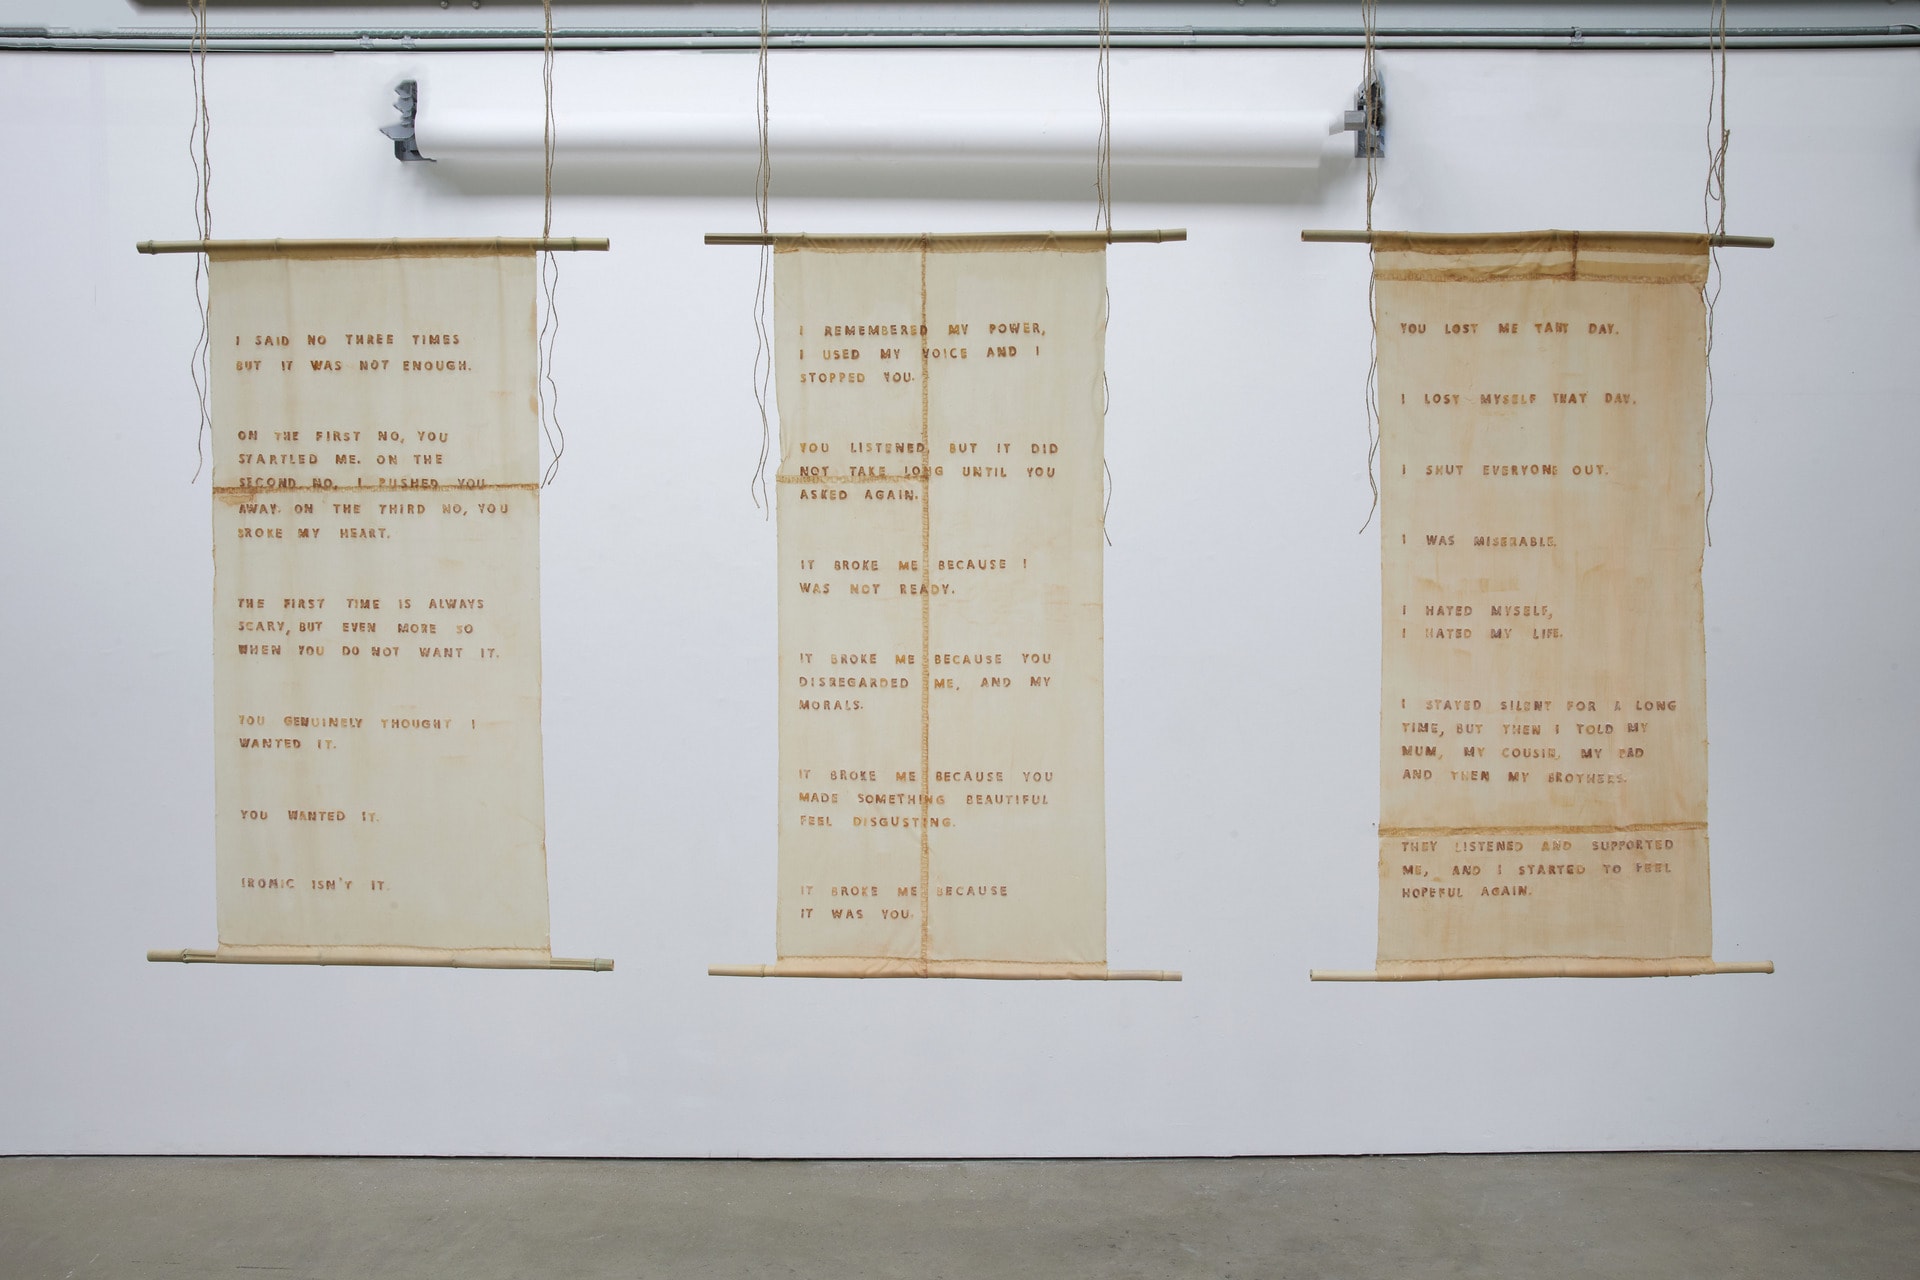 I SAID NO THREE TIMES
BUT IT WAS NOT ENOUGH.
ON THE FIRST NO, YOU
STARTLED ME. ON THE
SECOND NO, I PUSHED YOU
AWAY. ON THE THIRD NO, YOU
BROKE MY HEART.
THE FIRST TIME IS ALWAYS
SCARY, BUT EVEN MORE SO
WHEN YOU DO NOT WANT IT.
YOU GENUINELY THOUGHT I
WANTED IT.
YOU WANTED IT.
IRONIC ISN'T IT.
I REMEMBERED MY POWER,
I USED MY VOICE AND I
STOPPED YOU.
YOU LISTENED, BUT IT DID
NOT TAKE LONG UNTIL YOU
ASKED AGAIN.
IT BROKE ME BECAUSE I
WAS NOT READY.
IT BROKE ME BECAUSE YOU
DISREGARDED ME, AND MY
MORALS.
IT BROKE ME BECAUSE YOU
MADE SOMETHING BEAUTIFUL
FEEL DISGUSTING.
IT BROKE ME BECAUSE
IT WAS YOU.
YOU LOST ME TAHT DAY.
I LOST MYSELF THAT DAY.
I SHUT EVERYONE OUT.
I WAS MISERABLE.
I HATED MYSELF,
I HATED MY LIFE.
I STAYED SILENT FOR A LONG
TIME, BUT THEN I TOLD MY
MUM, MY COUSIN, MY DAD
AND THEN MY BROTHERS.
THEY LISTENED AND SUPPORTED
ME, AND I STARTED TO FEEL
HOPEFUL AGAIN.